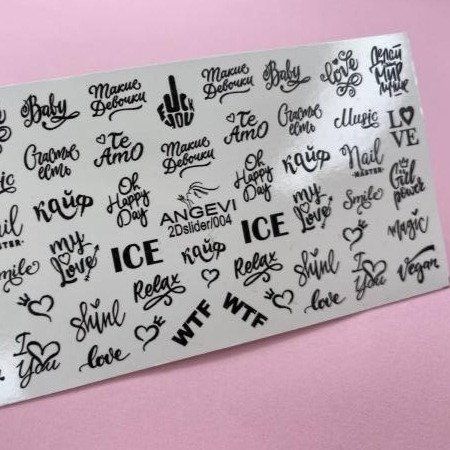 Baby
Такие
Девочки
FUCK
YOU
Такие
Девочки
Baby
love
Делай
Мир
лучше
Счастье
есть
Te
Amo
Такие
Девочки
Te
Amo
Счастье
есть
Music
LOVE
Nail
MASTER
кайф
Oh
Happy
Day
ANGEVI
2Dslider/004
Oh
Happy
Day
кайф
Nail
MASTER
Girl
power
Smile
my
Love
ICE
кайф
ICE
my
Love
Smile
Magic
I
You
Shine
Relax
WTF
WTF
Relax
Shine
I
You
Vegan
love
love